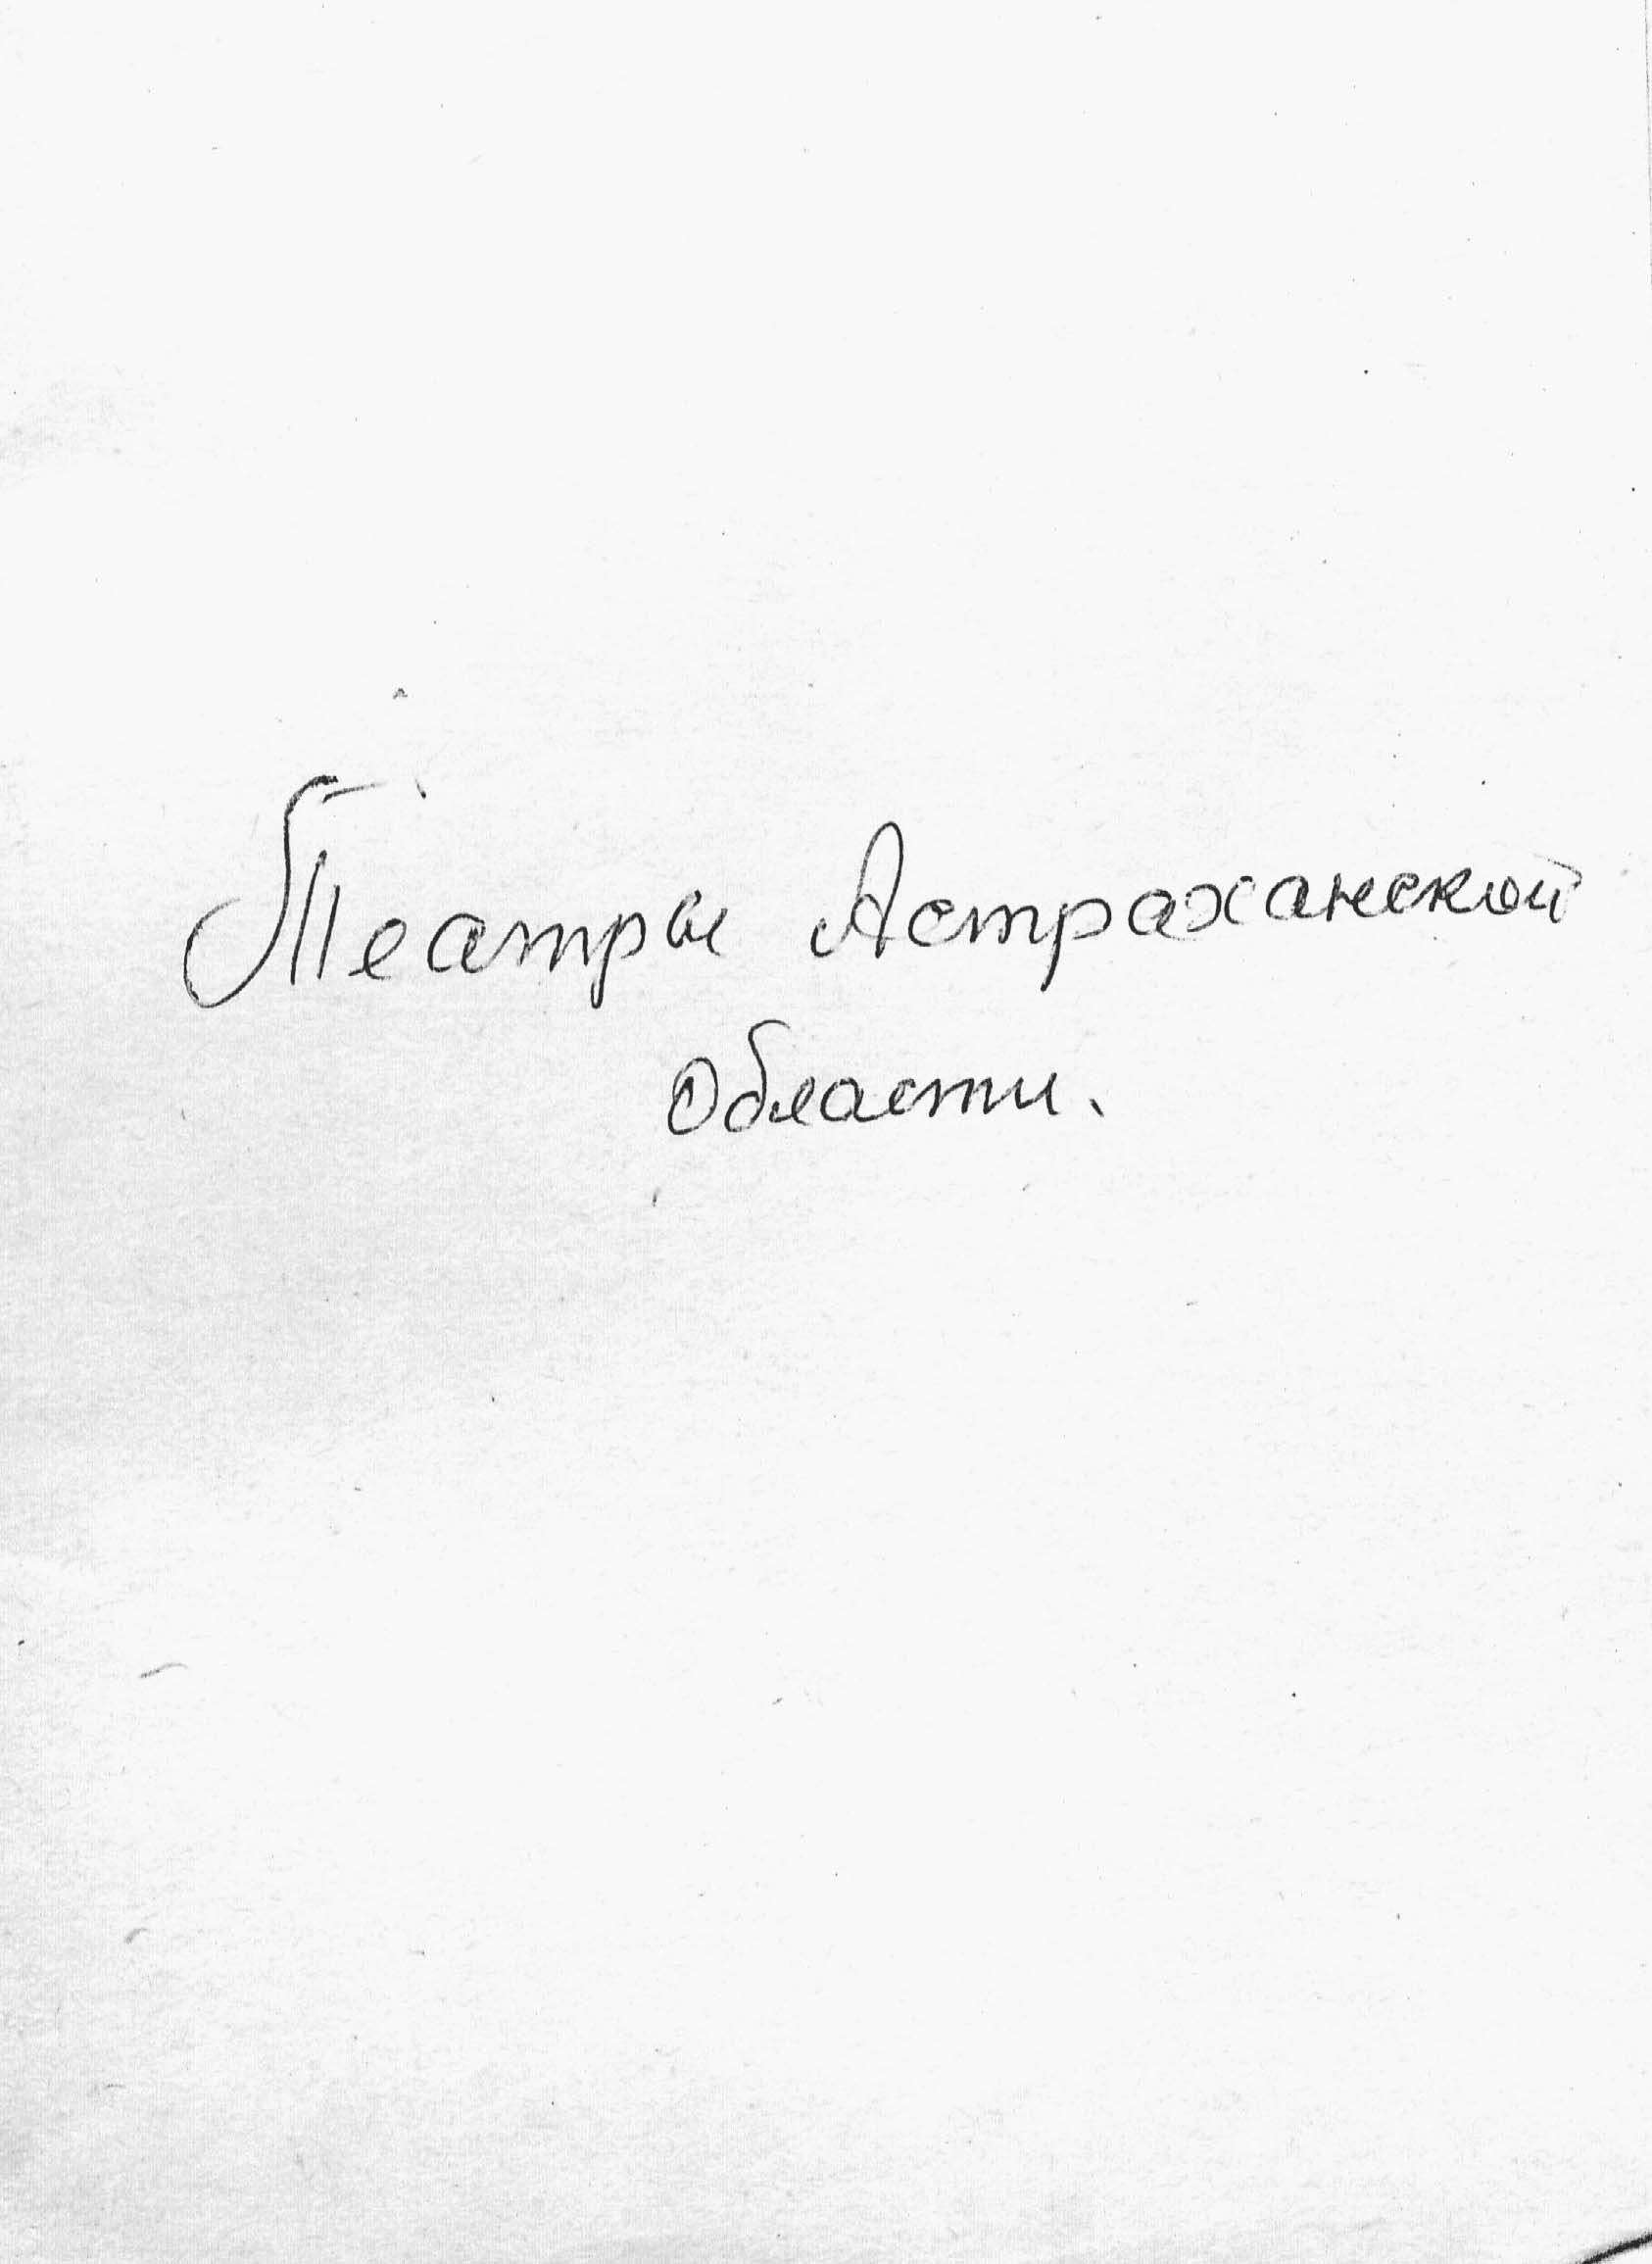 Театры Астраханской
области.